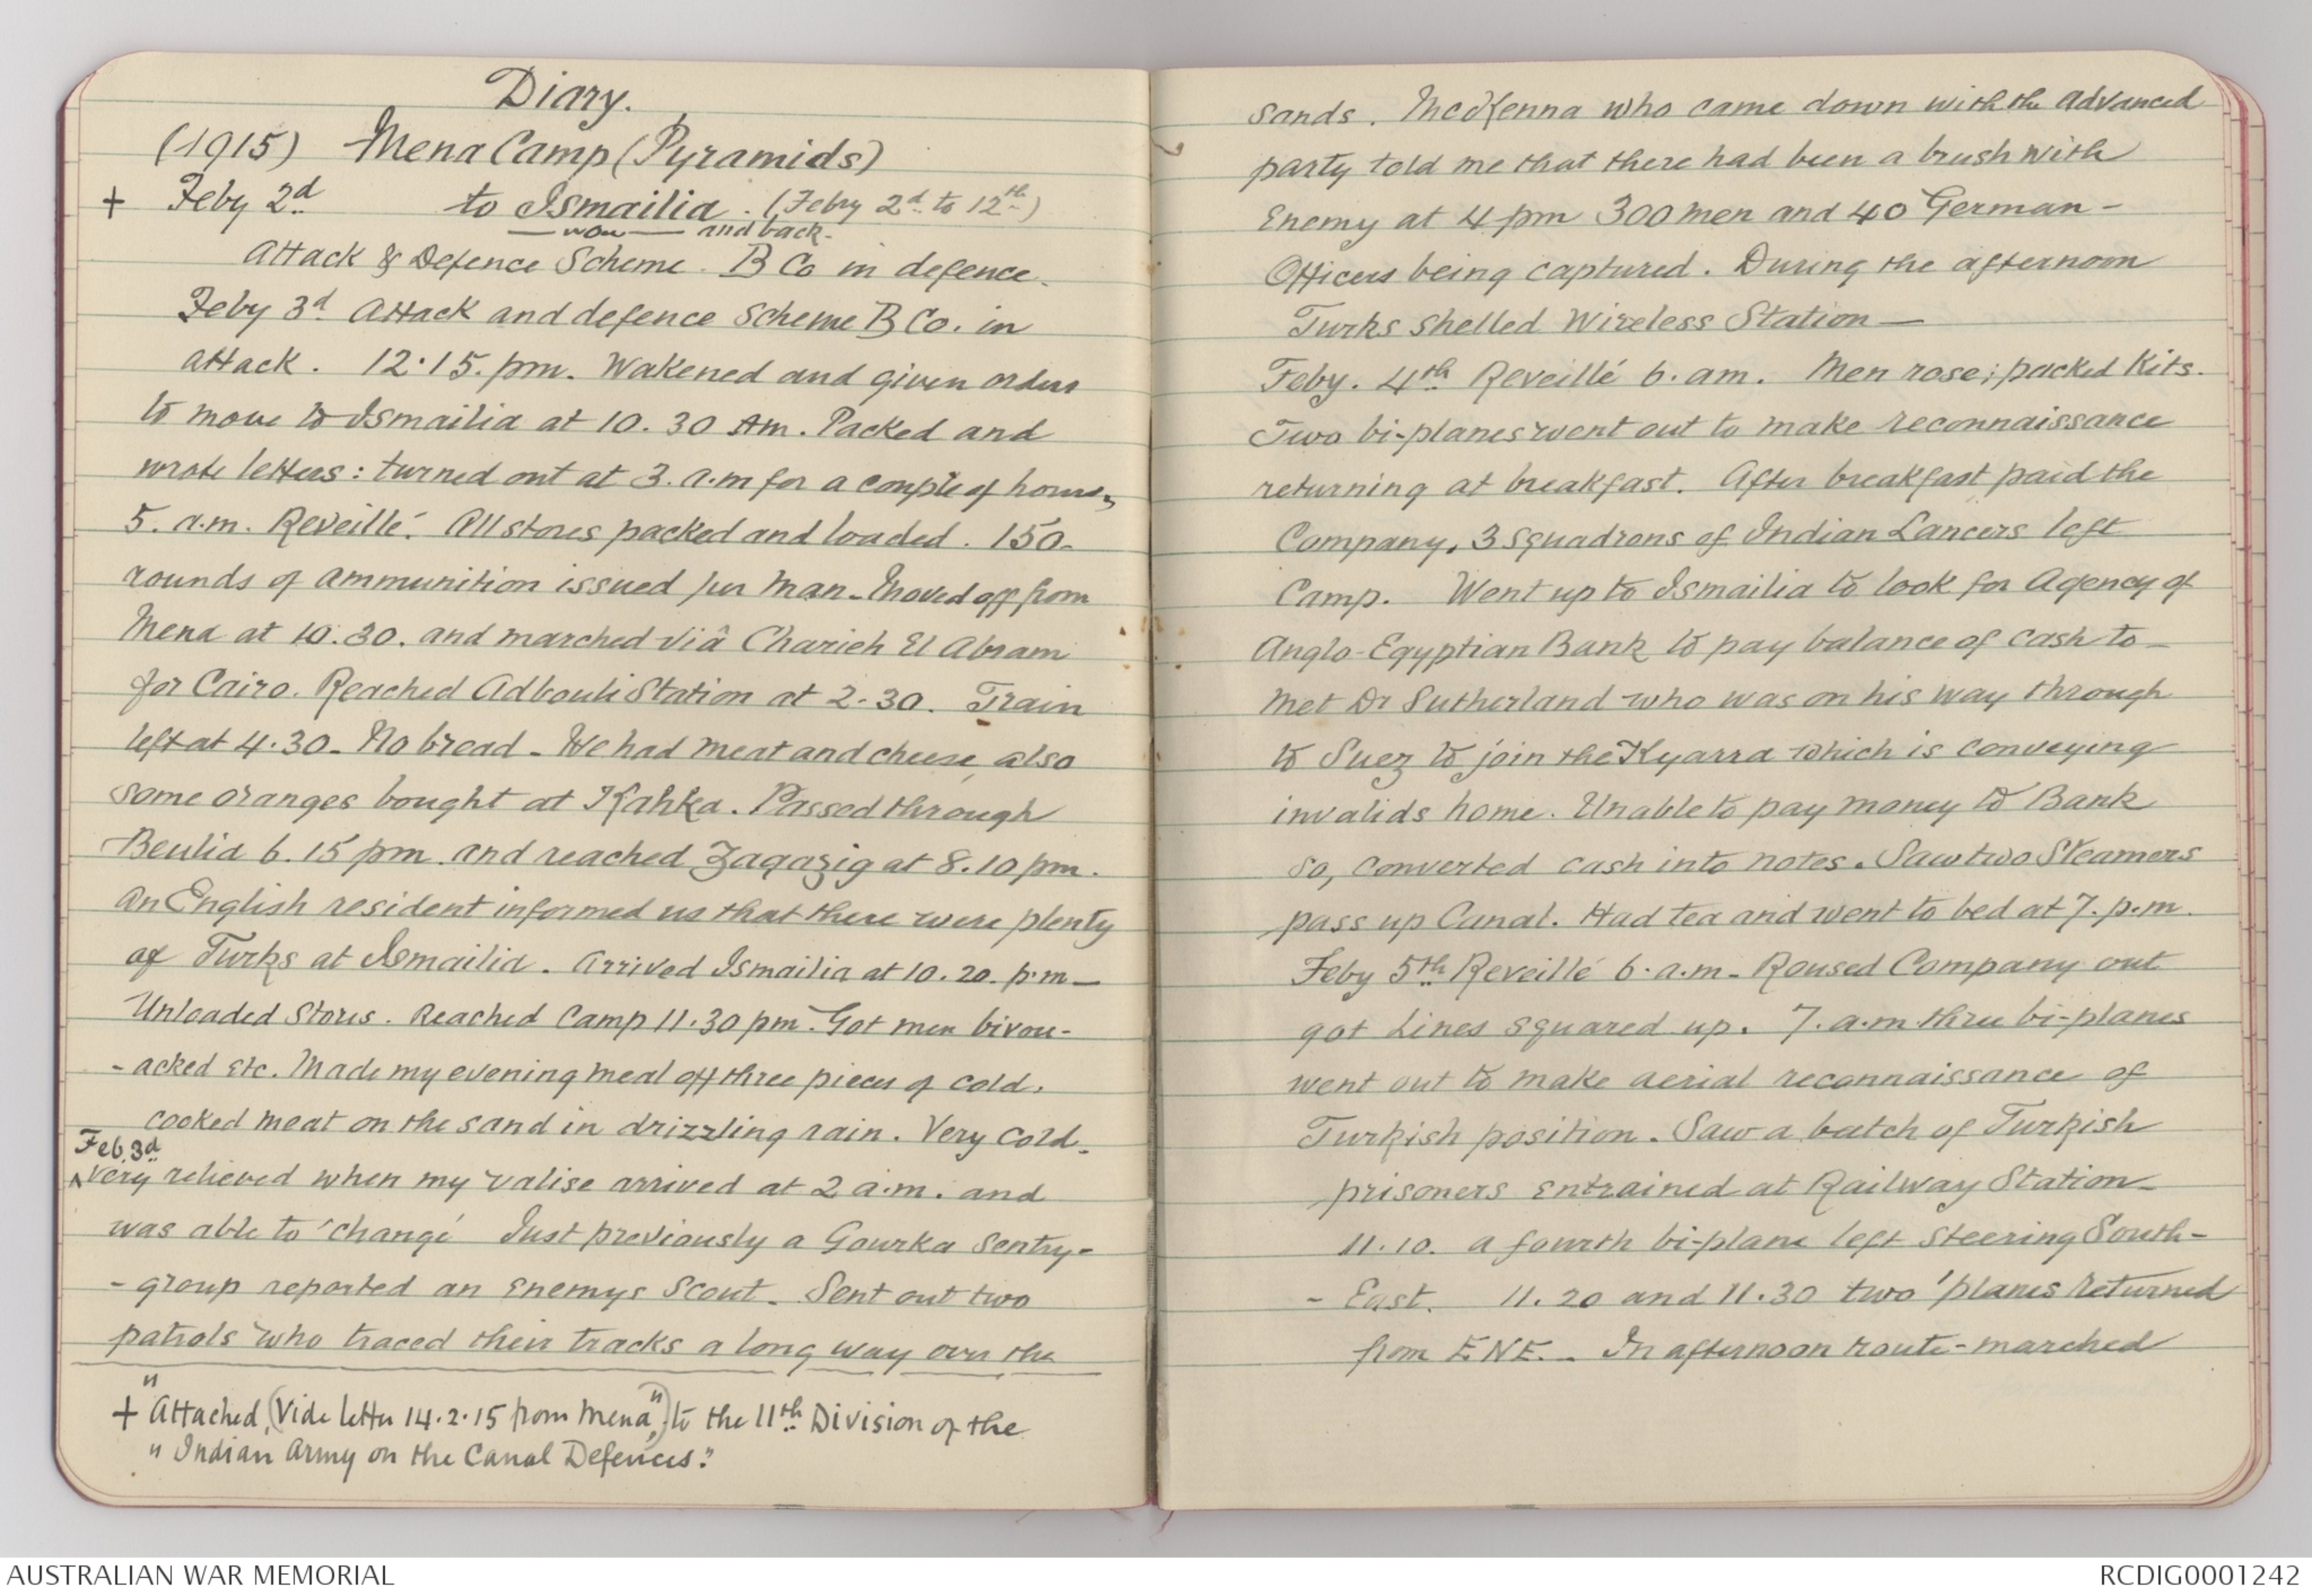 Diary.
(1915) Mena Camp (Pyramids)
+ Feby 2d to Ismailia. (Feby 2d to 12th)
and back.
Attack & Defence Scheme. B Co in defence.
Feby 3d Attack and defence Scheme B Co. in
attack. 12.15. pm. Wakened and given orders
to move to Ismailia at 10.30 Am. Packed and
wrote letters: turned out at 3. a.m for a couple of hours,
5. a.m. Reveillé. All stores packed and loaded. 150-
rounds of ammunition issued per man. Moved off from
Mena at 10.30. and marched viâ Charieh El Abram
for Cairo. Reached Adbouli Station at 2-30. Train
left at 4.30 - No bread - We had meat and cheese, also
some oranges bought at Kahka. Passed through
Beulia 6.15 pm. and reached Zagazig at 8.10 pm.
An English resident informed us that there were plenty
of Turks at Ismailia. Arrived Ismailia at 10.20. p.m -
Unloaded Stores. Reached Camp 11.30 pm. Got men bivou-
- acked etc. Made my evening meal off three pieces of cold.
cooked meat on the sand in drizzling rain. Very cold.
Feb. 3d
^ Very relieved when my valise arrived at 2 a.m. and
was able to 'change' Just previously a Gourka Sentry-
- group reported an Enemys Scout. Sent out two
patrols who traced their tracks a long way over the
+ "Attached, (Vide letter 14.2.15 from Mena",) to the 11th Division of the
" Indian Army on the Canal Defences."
sands. McKenna who came down with the advanced
party told me that there had been a brush with
Enemy at 4 pm 300 men and 40 German -
Officers being captured. During the afternoon
Turks shelled Wireless Station —
Feby. 4th Reveillé 6. am. Men rose; packed Kits.
Two bi-planes went out to make reconnaissance
returning at breakfast. After breakfast paid the
Company. 3 Squadrons of Indian Lancers left
Camp. Went up to Ismailia to look for Agency of
Anglo-Egyptian Bank to pay balance of cash to -
Met Dr Sutherland who was on his way through
to Suez to join the Kyarra which is conveying
invalids home. Unable to pay money to Bank
so, converted cash into notes. Saw two Steamers
pass up Canal. Had tea and went to bed at 7. p.m.
Feby 5th Reveillé 6. a.m - Roused Company out
got Lines squared up. 7. a.m three bi-planes
went out to make aerial reconnaissance of
Turkish position. Saw a batch of Turkish
prisoners entrained at Railway Station -
11.10. a fourth bi-plane left steering South-
- East. 11.20 and 11.30 two 'planes returned
from E.N.E. - In afternoon route-marched
AUSTRALIAN WAR MEMORIAL
RCDIG0001242